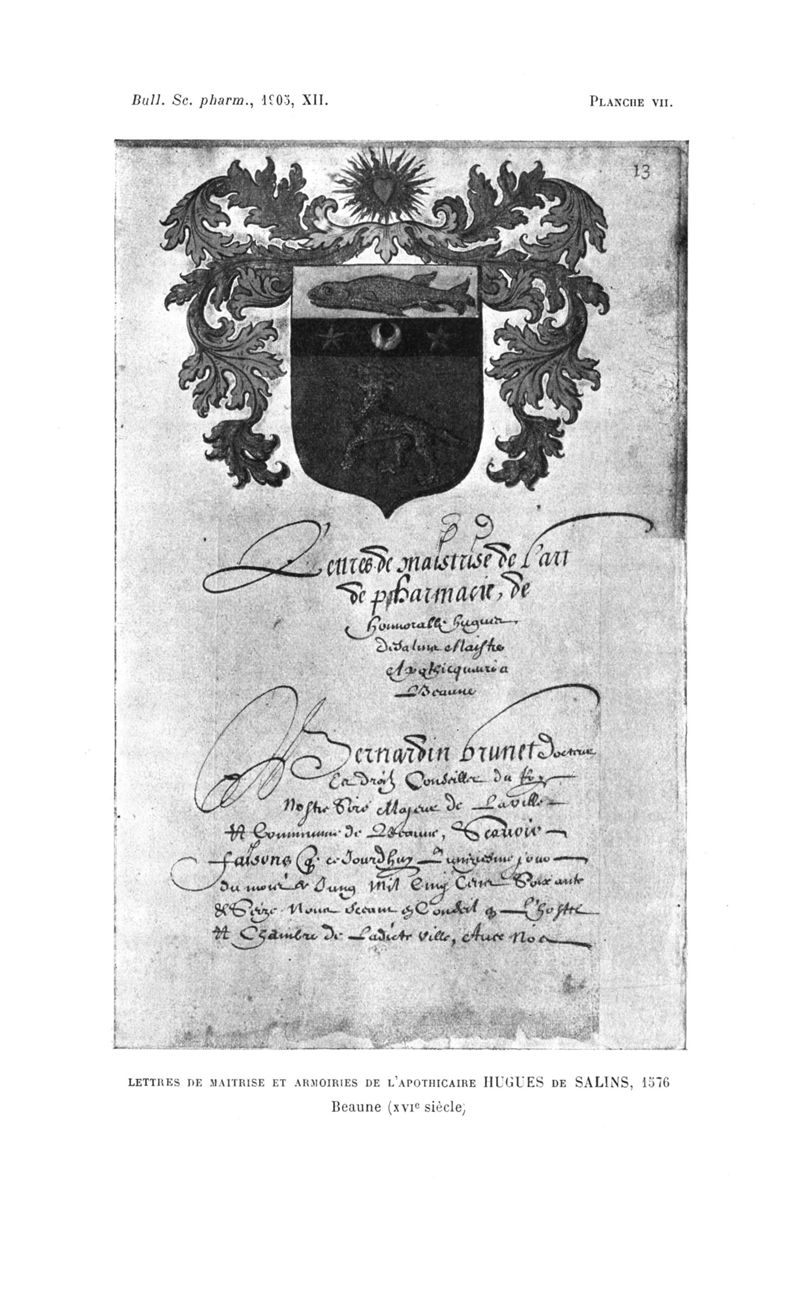 Bull. Sc. pharm., 1905, XII.
PLANCHE VII.
13
Lettres de maistrise de l'art
de pharmacie, de
honnorable hugues
de Salins Maistre
Appoticquaire a
Beaune
Bernardin brunet Docteur
Es Droitz Conseiller du Roy
Nostre Sire Majeur de La ville
Et Commune de Beaune, Scavoir
faisons q. ce Jourdhuy unziesme jour
du mois de Jung Mil Cinq Cens Soixante
& Seize Nous Conseil L'hostel
Et Chambre de Ladicte ville, Avec Noz
LETTRES DE MAITRISE ET ARMOIRIES DE L'APOTHICAIRE HUGUES DE SALINS, 1576
Beaune (XVIe siècle)